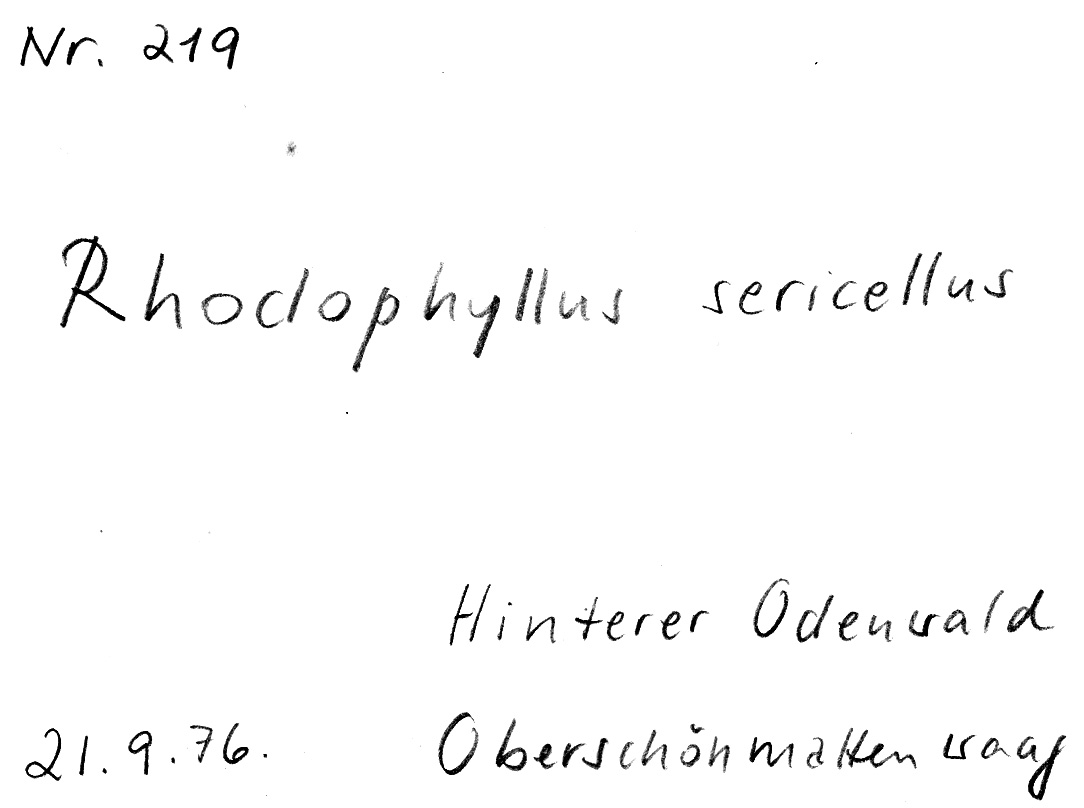 Nr. 219
Rhodophyllus sericellus
Hinterer Odenwald
21.9.76. Oberschönmattenwaag